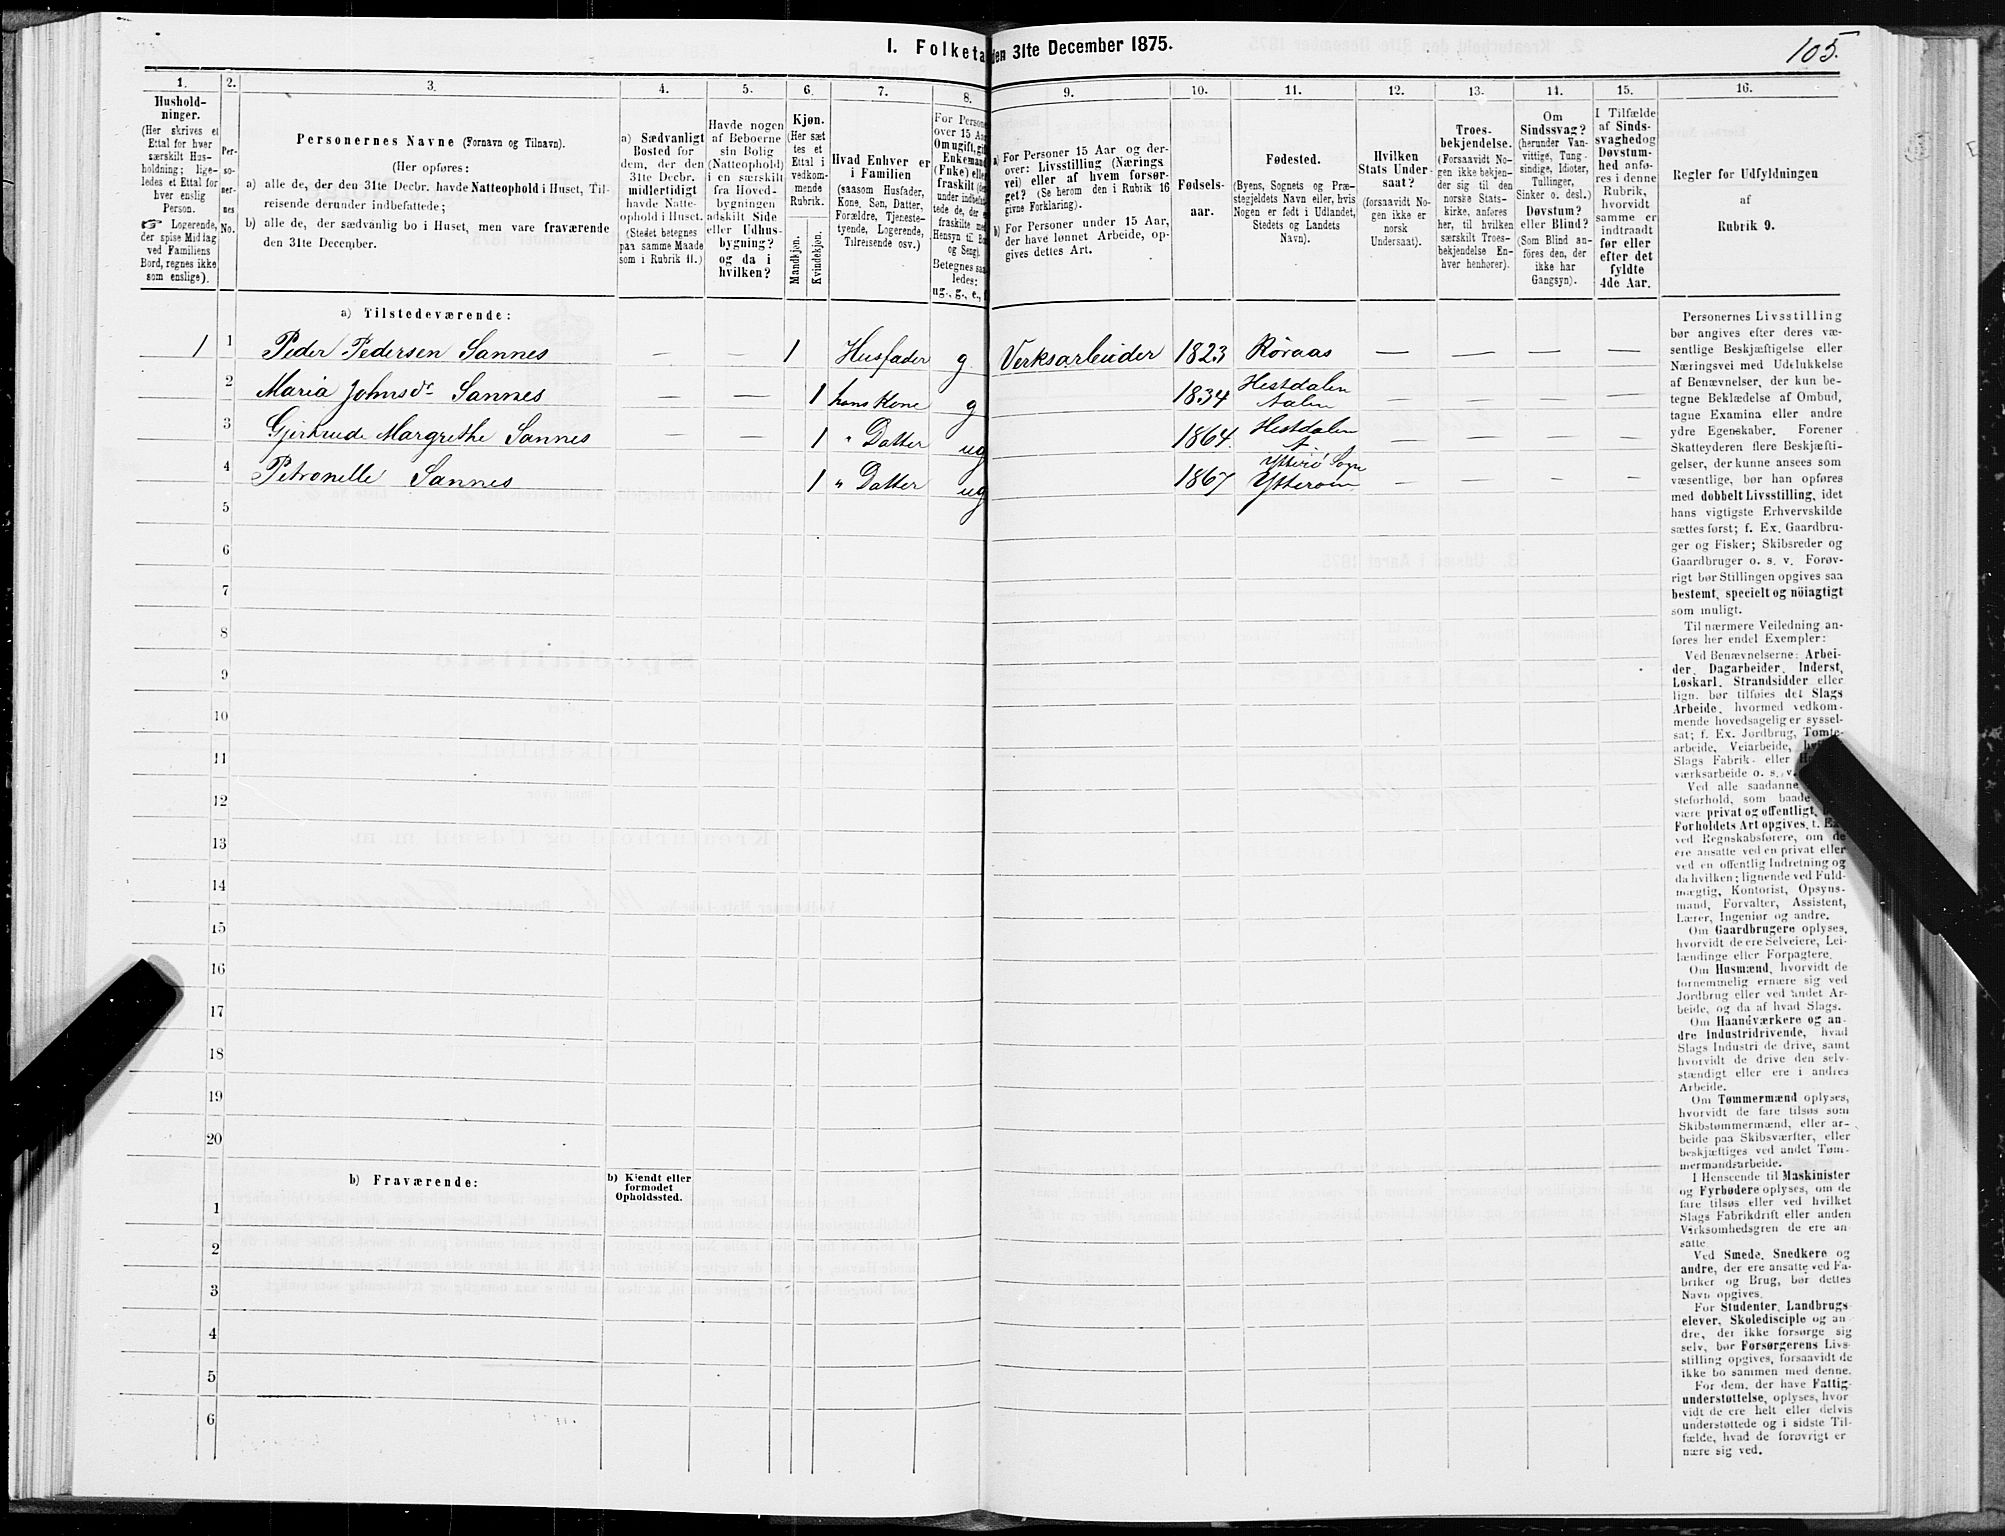 I. Folketa den 31te December 1875.
105.
1. 2. 3. 4. 5. 6. 7. 8. 9. 10. 11. 12. 13. 14. 15. 16.
Hushold-
ninger.
(Her skrives et
Ettal for hver
særskilt Hus-
holdning; lige-
ledes et Ettal for
hver enslig
Person.
☞ Logerende,
der spise Middag
ved Familiens
Bord, regnes ikke
som enslige).
Per-
so-
ner-
nes
No.
Personernes Navne (Fornavn og Tilnavn).
(Her opføres:
a) alle de, der den 31te Decbr. havde Natteophold i Huset, Til-
reisende derunder indbefattede;
b) alle de, der sædvanlig bo i Huset, men vare fraværende
den 31te December.
a) Sædvanligt
Bosted for
dem, der den
31te Decbr.
midlertidigt
havde Natte-
ophold i Huset.
(Stedet betegnes
paa samme Maade
som i Rubrik 11.)
Havde nogen
af Beboerne
sin Bolig
(Natteophold)
i en særskilt
fra Hoved-
bygningen
adskilt Side
eller Udhus-
bygning?
og da i
hvilken?
Kjøn.
(Her sæt
tes et
Ettal i
vedkom-
mende
Rubrik.
Mandkjøn.
Kvindekjøn.
Hvad Enhver er
i Familien
(saasom Husfader,
Kone, Søn, Datter,
Forældre, Tjeneste-
tyende, Logerende,
Tilreisende osv.)
For Persone
over 15 Aar
Om ugift, gift
Enkemand
(Enke) elle
fraskilt (de
under indbefat
tede de, der e
fraskilte me
Hensyn til Bo
og Seng).
Betegnes saa
ledes:
ug., g., e., f
a) For Personer 15 Aar og der-
over: Livsstilling (Nærings
vei) eller af hvem forsør-
get? (Se herom den i Rubrik 16
givne Forklaring).
b) For Personer under 15 Aar,
der have lønnet Arbeide, op-
gives dettes Art.
Fødsels-
aar.
Fødested.
(Byens, Sognets og Præ-
stegjeldets Navn eller, hvis
Nogen er født i Udlandet,
Stedets og Landets
Navn).
Hvilken
Stats Under-
saat?
(forsaavidt No-
gen ikke er
norsk
Undersaat).
Troes-
bekjendelse.
(Forsaavidt No-
gen ikke bekjen-
der sig til den
norske Stats-
kirke, anføres
her, til hvilken
særskilt Troes-
bekjendelse En-
hver henhører).
Om
Sindssvag?
(herunder Van-
vittige, Tung-
sindige, Idioter,
Tullinger,
Sinker o. desl.)
Døvstum?
eller Blind?
(Som Blind an-
føres den, der
ikke har
Gangsyn).
I Tilfælde
af Sinds-
svaghed og
Døvstum-
hed anfø-
res i denne
Rubrik,
hvorvidt
samme er
indtraadt
før eller
efter det
fyldte
4de Aar.
Regler for Udfyldningen
af
Rubrik 9.
a) Tilstedeværende:
1 1 Peder Pedersen Sannes — — 1 Husfader g Verksarbeider 1823 Røraas — — — —
2 Maria Johnsd. Sannes — — 1 hans Kone g 1834 Hestdalen Aalen — — — —
3 Gjertrude Margrethe Sannes — — 1 " Datter ug 1864. Hestdalen A — — — —
4 Petronelle Sannes 1 " Datter ug 1867 Ytterø Sogn Ytterøen — — — —
5
6
7
8
9
10
11
12
13
14
15
16
17
18
19
20
b) Fraværende:
b) Kjendt eller
formodet
Opholdssted.
1
2
3
4
5
6
Personernes Livsstilling
bør angives efter deres væ-
sentlige Beskjæftigelse eller
Næringsvei med Udelukkelse
af Benævnelser, der kun be-
tegne Beklædelse af Ombud,
tagne Examina eller andre
ydre Egenskaber. Forener
Skatteyderen flere Beskjæfti-
gelser, der kunne ansees som
væsentlige, bør han opføres
med dobbelt Livsstilling, idet
hans vigtigste Erhvervskilde
sættes først; f. Ex. Gaardbru-
ger og Fisker; Skibsreder og
Gaardbruger o. s. v. Forøv-
rigt bør Stillingen opgives saa
bestemt, specielt og nöiagtigt
som muligt.
Til nærmere Veiledning an-
føres her endel Exempler:
Ved Benævnelserne: Arbei-
der, Dagarbeider, Inderst,
Løskarl, Strandsidder eller
lign. bør tilføies det Slags
Arbeide, hvormed vedkom-
mende hovedsagelig er syssel-
sat; f. Ex. Jordbrug, Tomte-
arbeide, Veiarbeide,
Slags Fabrik- eller
værksarbeide o. s. v.
Ved alle saadanne
steforhold, som baade
være privat og offentligt,
Forholdets Art opgives, t. Ex.
ved Regnskabsførere, om de
ere ansatte ved en privat eller
ved en offentlig Indretning og
da hvilken; lignende ved Fuld-
mægtig, Kontorist, Opsyns-
mand, Forvalter, Assistent,
Lærer, Ingeniør og andre.
Om Gaardbrugere oplyses,
hvorvidt de ere Selveiere, Lei-
lændinge eller Forpagtere.
Om Husmænd, hvorvidt de
fornemmelig ernære sig ved
Jordbrug eller ved andet Ar-
beide, og da af hvad Slags.
Om Haandværkere og an-
dre Industridrivende, hvad
Slags Industri de drive, samt
hvorvidt de drive den selv-
stændigt eller ere i andres
Arbeide.
Om Tømmermænd oplyses,
hvorvidt de fare tilsøs som
Skibstømmermænd, eller ar-
beide paa Skibsværfter, eller
beskjæftiges ved andet Tøm-
mermandsarbeide.
I Henseende til Maskinister
og Fyrbødere oplyses, om de
fare tilsøs eller ved hvilket
Slags Fabrikdrift eller anden
Virksomhedsgren de ere an-
satte
Ved Smede, Snedkere og
andre, der ere ansatte ved Fa-
briker og Brug, bør dettes
Navn opgives.
For Studenter, Landbrugs-
elever, Skoledisciple og an-
dre, der ikke forsørge sig
selv, bør Forsørgerens Livs-
stilling opgives, forsaavidt de
ikke bo sammen med denne.
For dem, der have Fattig-
understøttelse, oplyses, hvor
vidt de ere helt eller delvis
understøttede og i sidste Til-
fælde, hvad de forøvrigt er
nære sig ved.